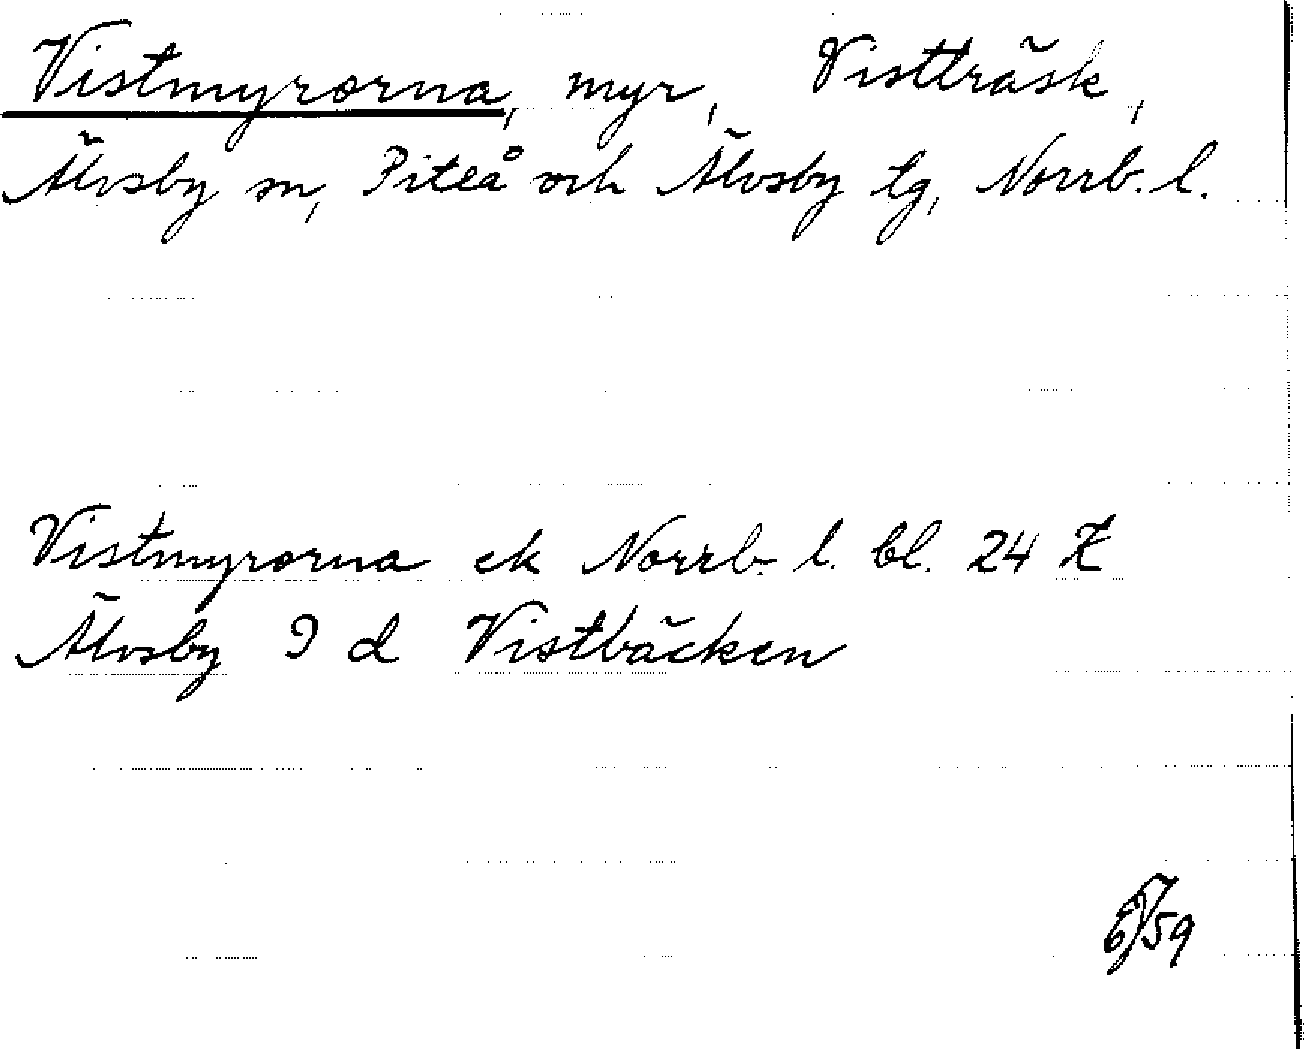 Vistmyrorna, myr, Vistträsk,
Älvsby sn, Piteå och Älvsby tg, Norrb. l.
Vistmyrorna ek Norrb. l. bl. 24 Z
Älvsby 9 d Vistbäcken